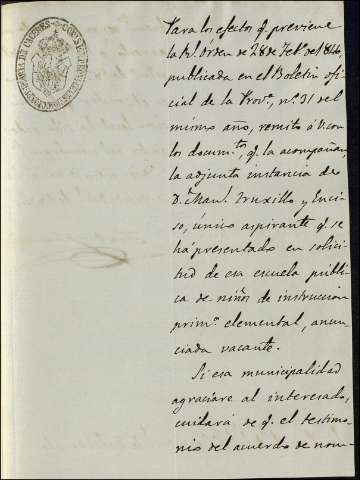 Para los efectos q. previene
la Rl. orden de 28 de Febo. de 1846,
publicada en el Boletin ofi-
cial de la Prova., no. 31 del
mismo año, remito á V. con
los documtos. q. la acompañan,
la adjunta instancia de
D. Manl. Truxillo y Enci-
so, único aspirante q. se
há presentado en solici-
tud de esa escuela públi-
ca de niños de instruccion
prima. elemental, anun-
ciada vacante.
Si esa municipalidad
agraciare al interesado,
cuidará de q. el testimo-
nio del acuerdo de nom-